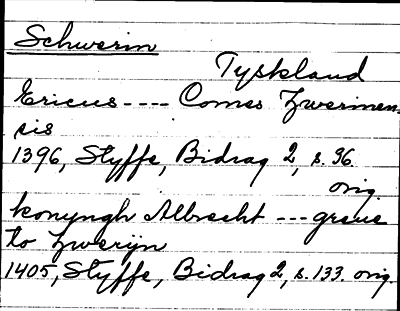 Schwerin
Tyskland
Ericus ---- Comes Zwerinen-
sis
1396, Styffe, Bidrag 2, s. 96
orig.
konyngh Albrecht --- greue
to Zwerijn
1405, Styffe, Bidrag 2, s. 133. orig.